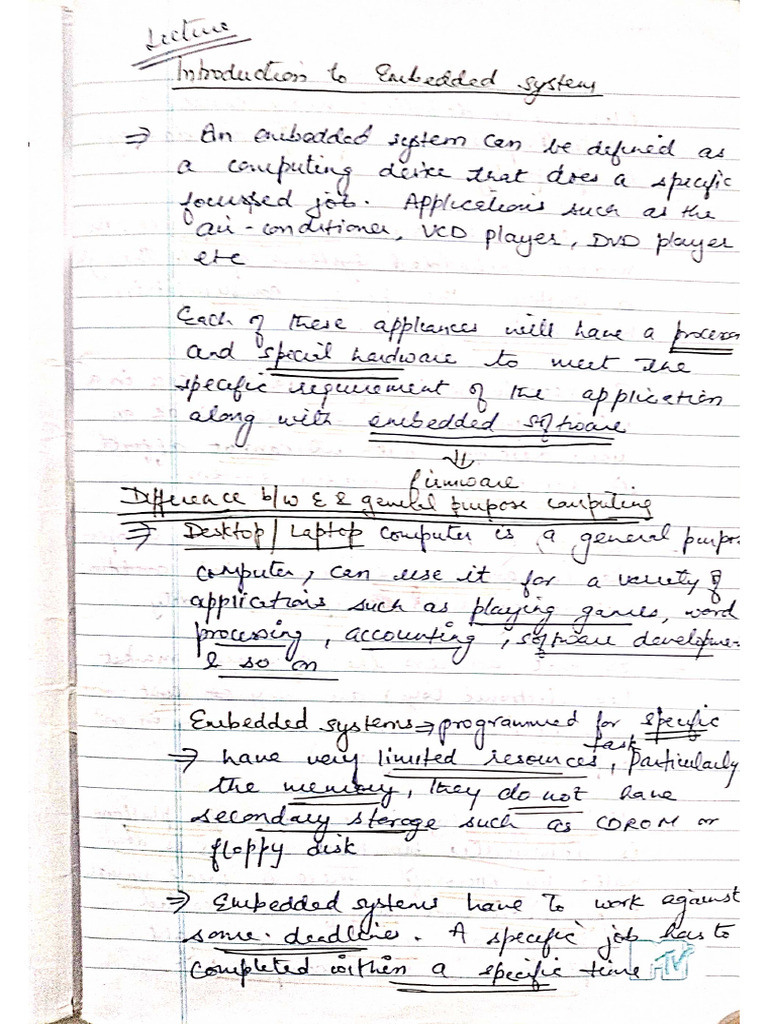 Lecture
Introduction to Embedded system
⇒ An embedded system can be defined as
a computing device that does a specific
focussed job. Applications such as the
air-conditioner, VCD player, DVD player
etc
Each of these appliances will have a process
and special hardware to meet the
specific requirement of the application
along with embedded software
⇓
firmware
Difference b/w E & general purpose computing
⇒ Desktop/Laptop computer is a general purpo
computer, can use it for a variety of
applications such as playing games, word
processing, accounting, software developme-
& so on
Embedded systems → programmed for specific
task
⇒ have very limited resources, particularly
the memory, they do not have
secondary storage such as CDROM or
floppy disk
⇒ Embedded systems have to work against
some deadlines. A specific job has to
completed within a specific time
MTV